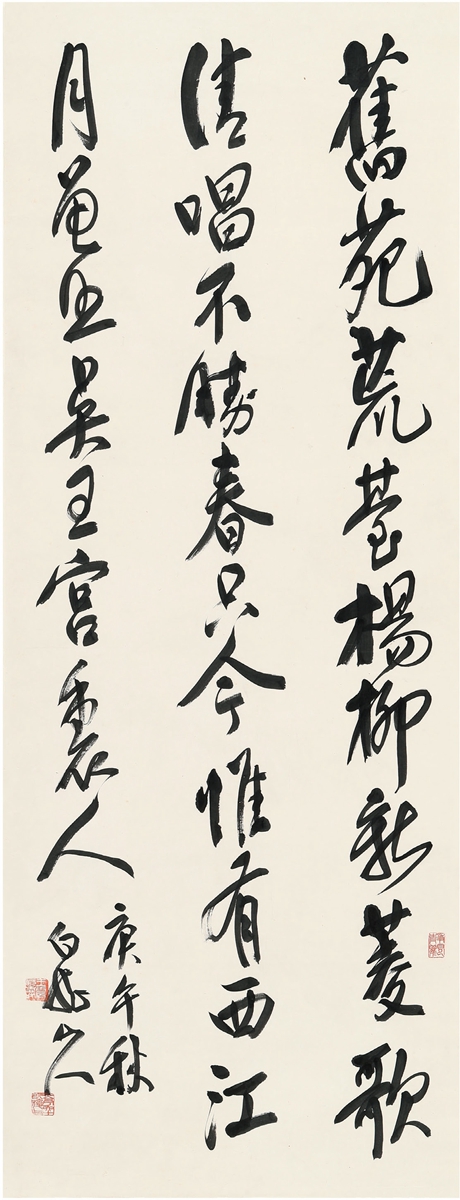 舊苑荒臺楊柳新菱歌
清唱不勝春只今惟有西江
月曾照吳王宮裏人
庚午秋
白山人